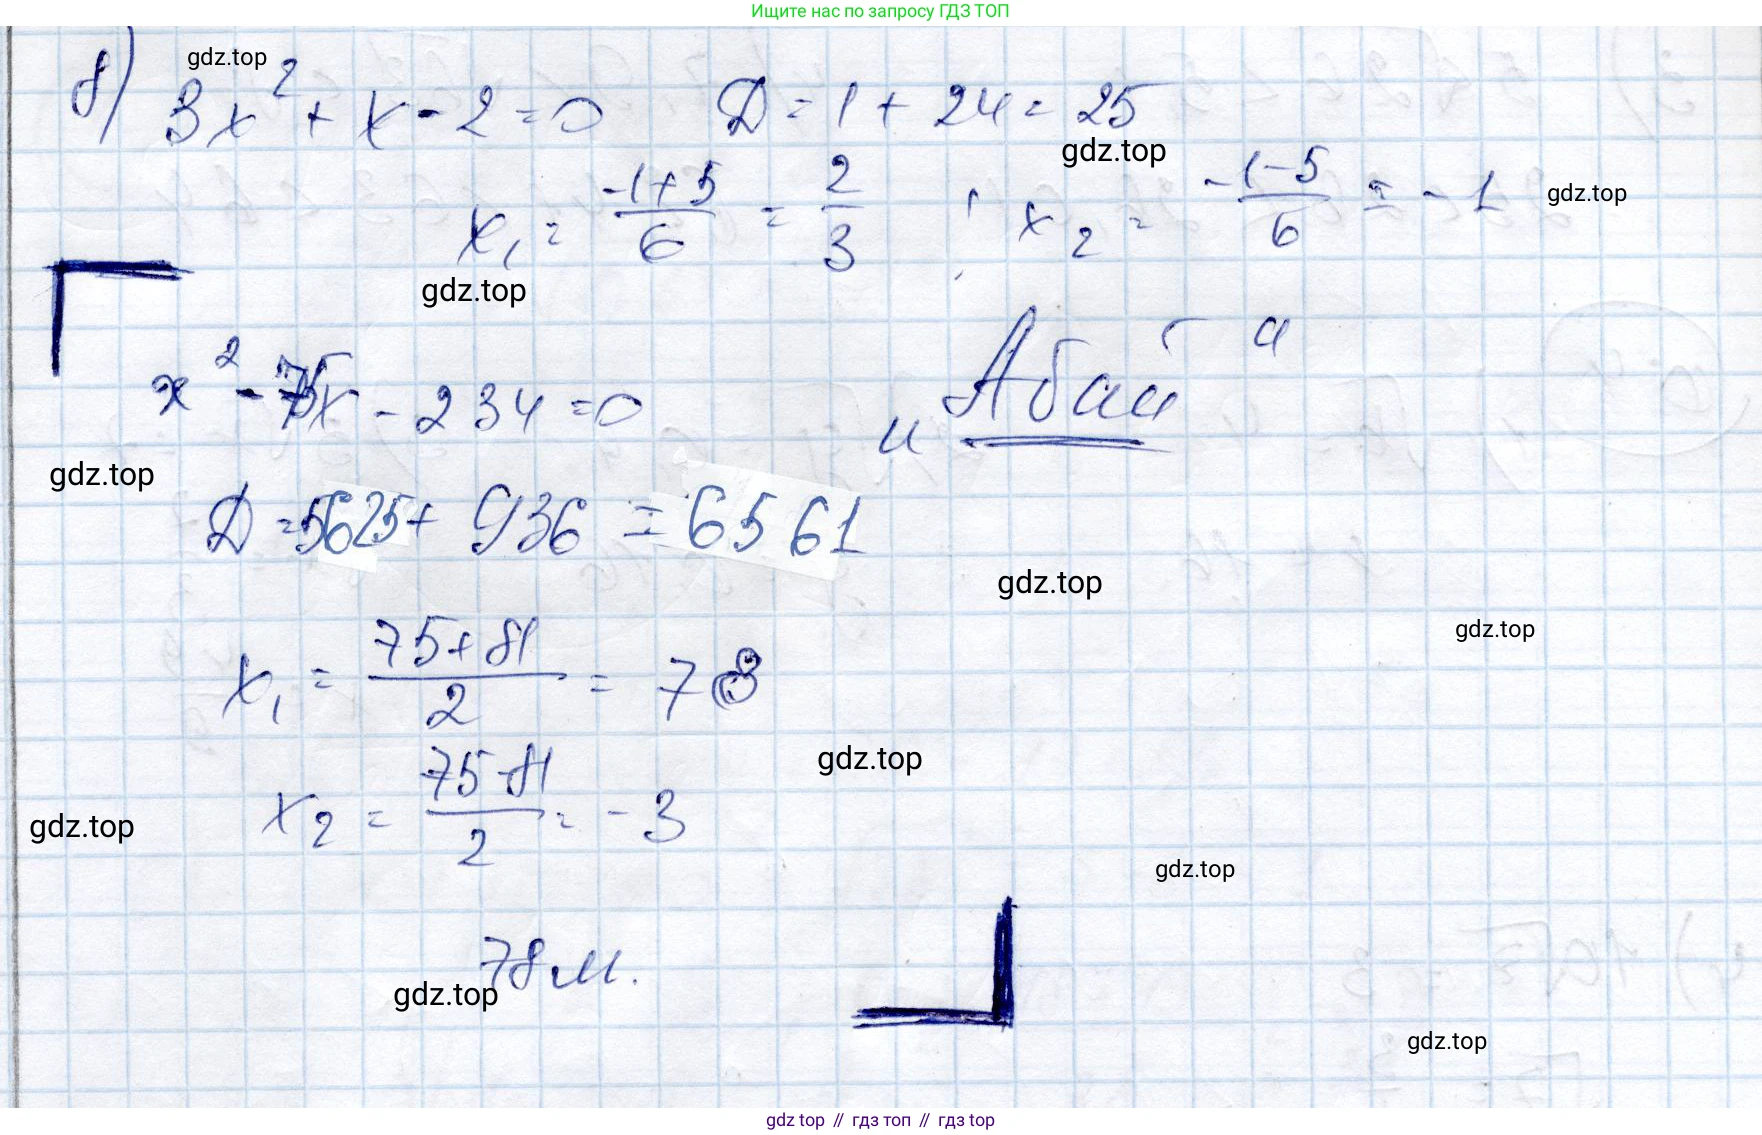 Ищите нас по запросу ГДЗ ТОП
8) 3x² + x - 2 = 0 D = 1 + 24 = 25
x₁ = (-1+5)/6 = 2/3 ; x₂ = (-1-5)/6 = -1
x² - 75x - 234 = 0
"Абай"
D = 5625 + 936 = 6561
x₁ = (75+81)/2 = 78
x₂ = (75-81)/2 = -3
78 м.
gdz.top
gdz.top
gdz.top
gdz.top
gdz.top
gdz.top
gdz.top
gdz.top
gdz.top
gdz.top
gdz.top
gdz.top
gdz top // гдз топ // gdz.top